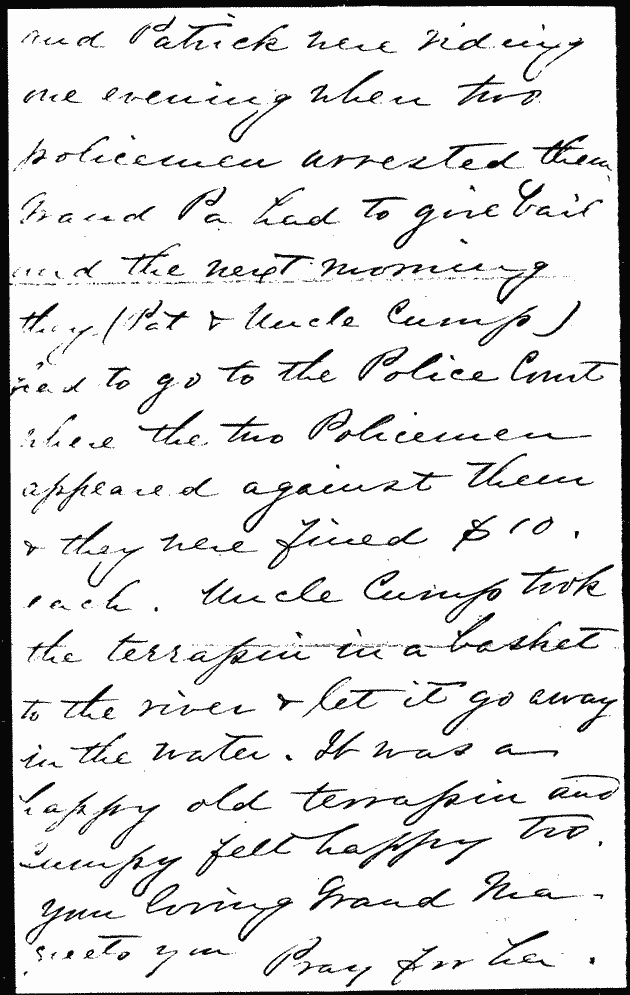 and Patrick were riding
one evening when two
policemen arrested them
Grand Pa had to give bail
and the next morning
they (Pat & Uncle Cump)
had to go to the Police Court
where the two Policemen
appeared against them
& they were fined $10.
each. Uncle Cump took
the terrapin in a basket
to the river & let it go away
in the water. It was a
happy old terrapin and
Cumpy felt happy too.
Your loving Grand Ma
greets you Pray for her.